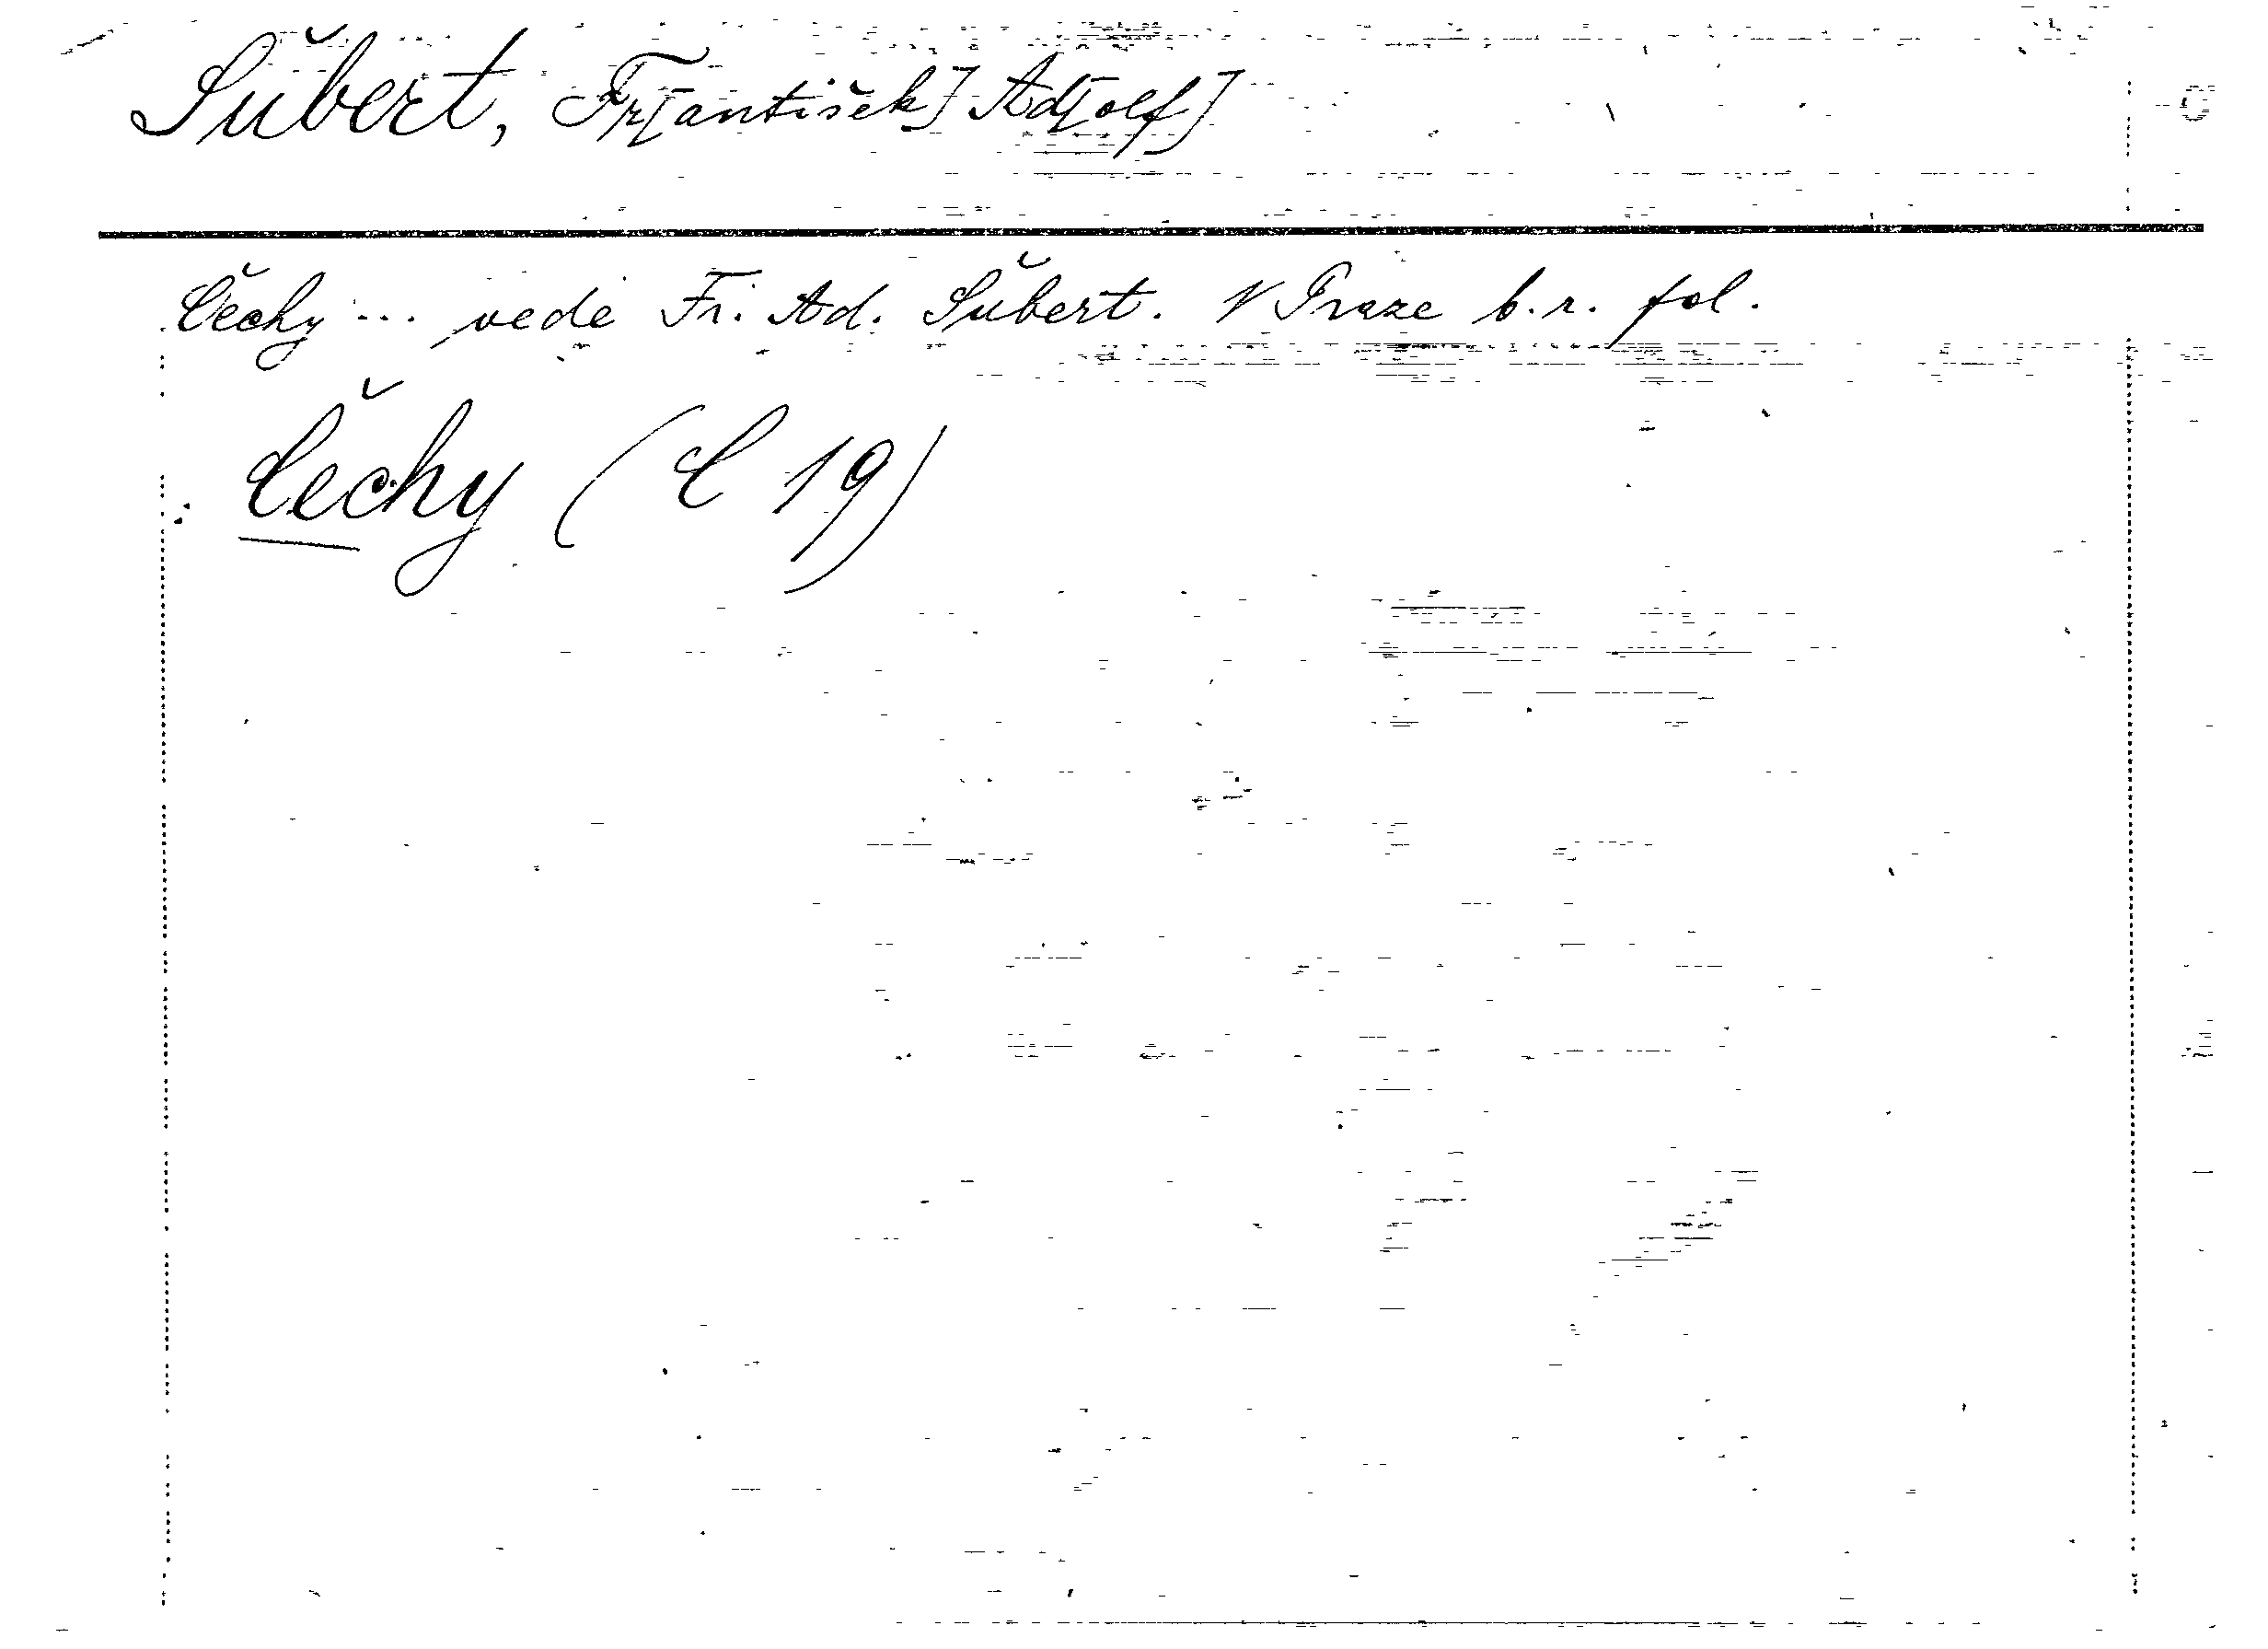 Šubert, Fr[antišek] Ad[olf]
Čechy ... vede Fr. Ad. Šubert. V Praze b.r. fol.
Čechy (C 19)